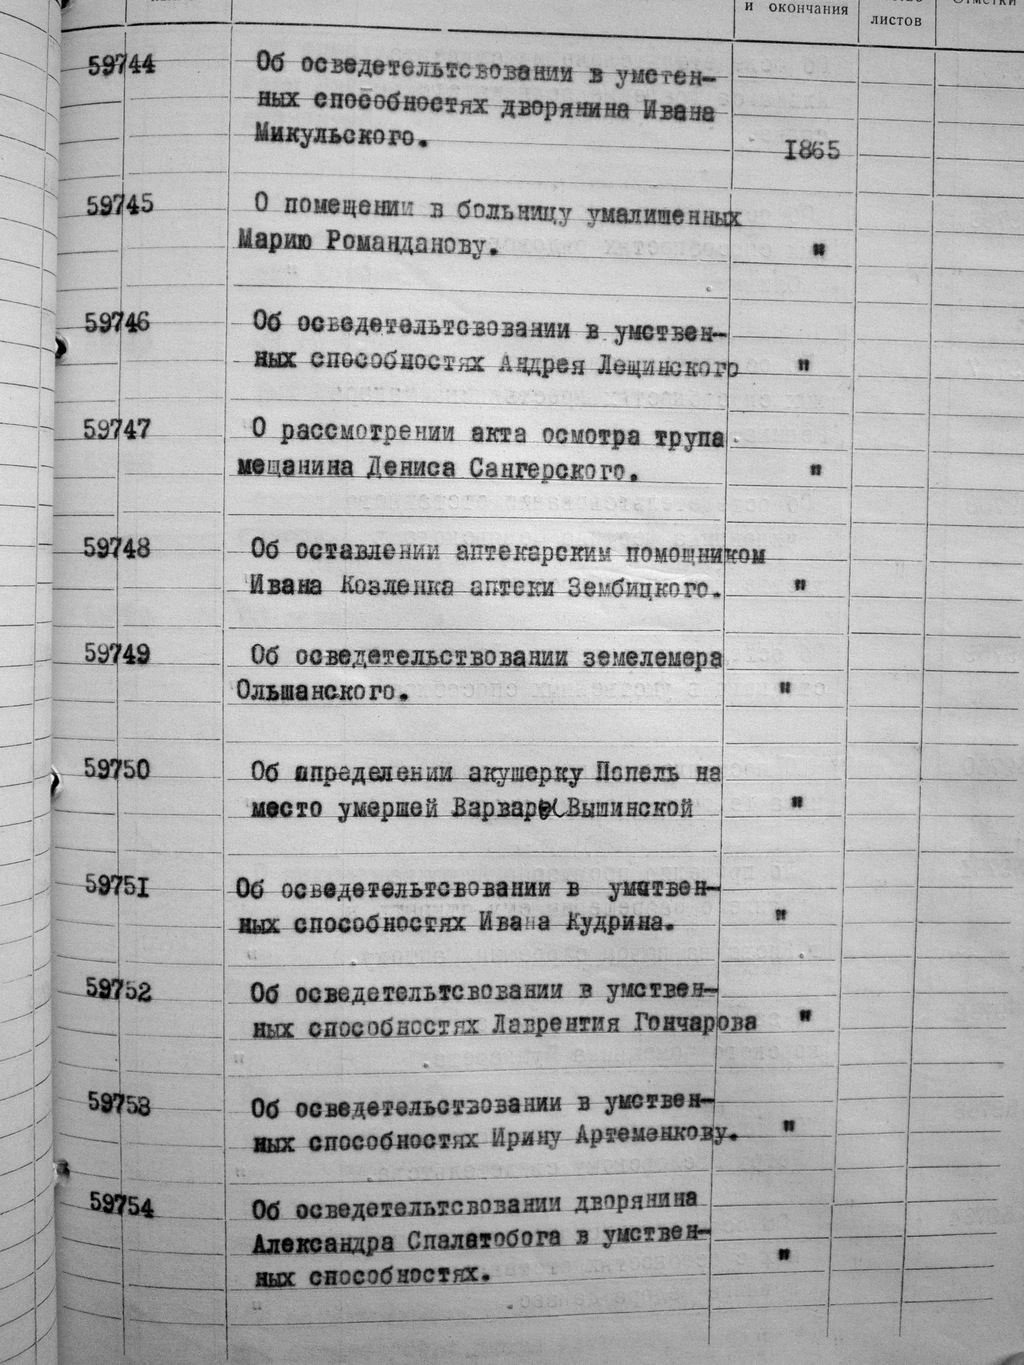 и окончания
листов
59744 Об осведетельтсвовании в умстен-
ных способностях дворянина Ивана
Микульского. 1865
59745 О помещении в больницу умалишенных
Марию Романданову. "
59746 Об осведетельтсвовании в умствен-
ных способностях Андрея Лещинского "
59747 О рассмотрении акта осмотра трупа
мещанина Дениса Сангерского. "
59748 Об оставлении аптекарским помощником
Ивана Козленка аптеки Зембицкого. "
59749 Об осведетельствовании земелемера
Ольшанского. "
59750 Об определении акушерку Попель на
место умершей Варвары Вышинской "
59751 Об осведетельтсвовании в умствен-
ных способностях Ивана Кудрина. "
59752 Об осведетельтсвовании в умствен-
ных способностях Лаврентия Гончарова "
59753 Об осведетельствовании в умствен-
ных способностях Ирину Артеменкову. "
59754 Об осведетельтсвовании дворянина
Александра Спалатобога в умствен-
ных способностях. "